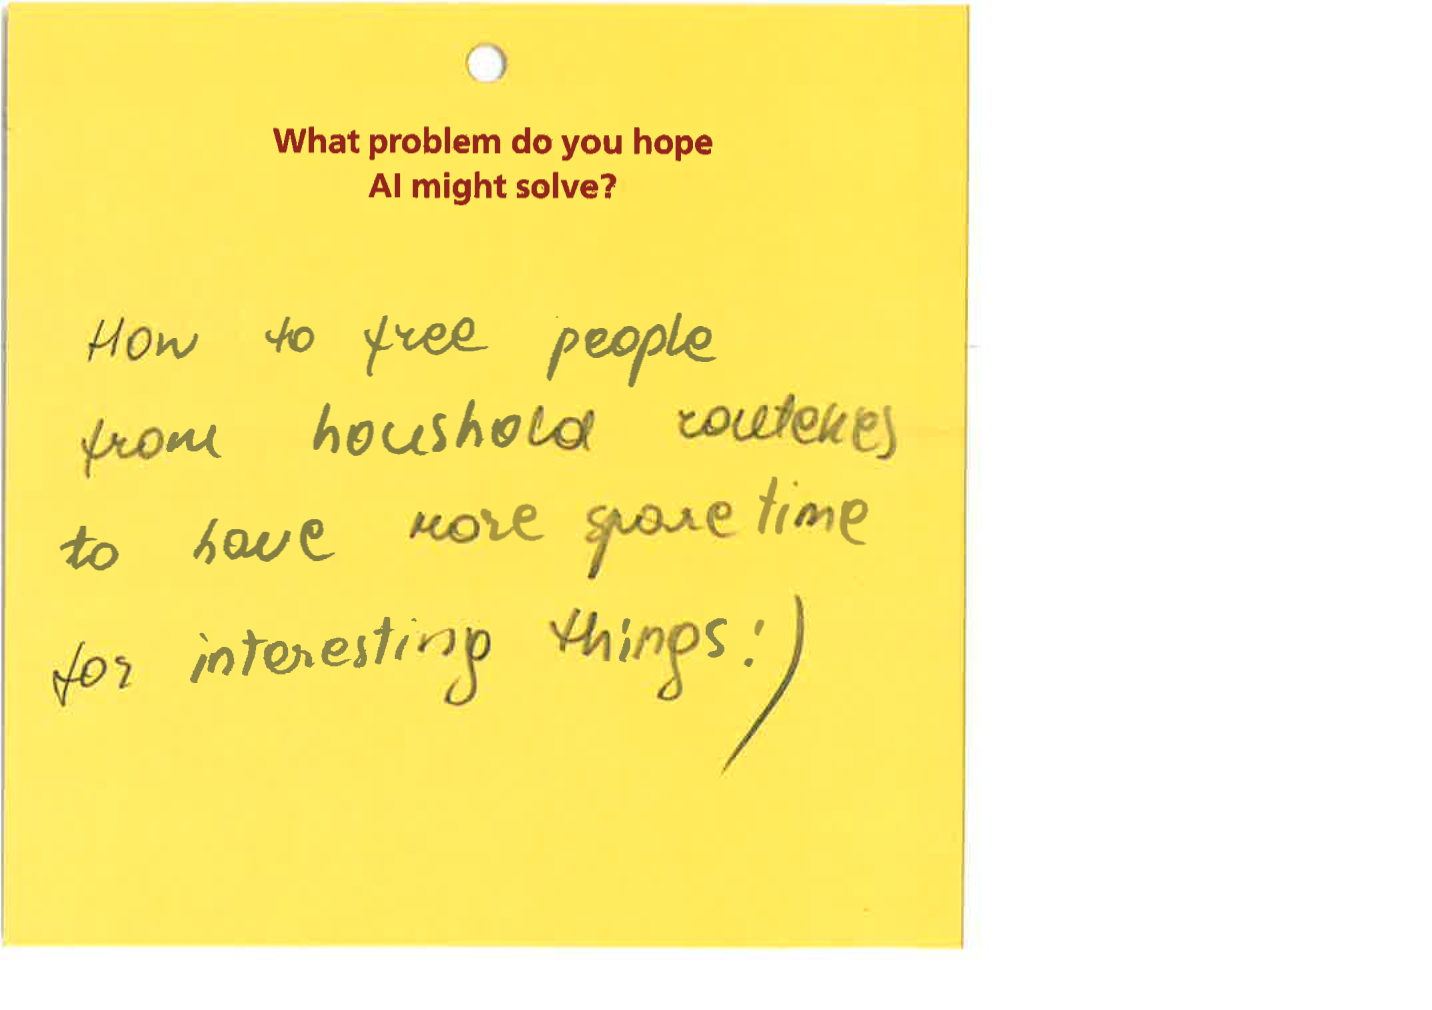 What problem do you hope
AI might solve?
How to free people
from houshold routenes
to have more spare time
for interesting things:)